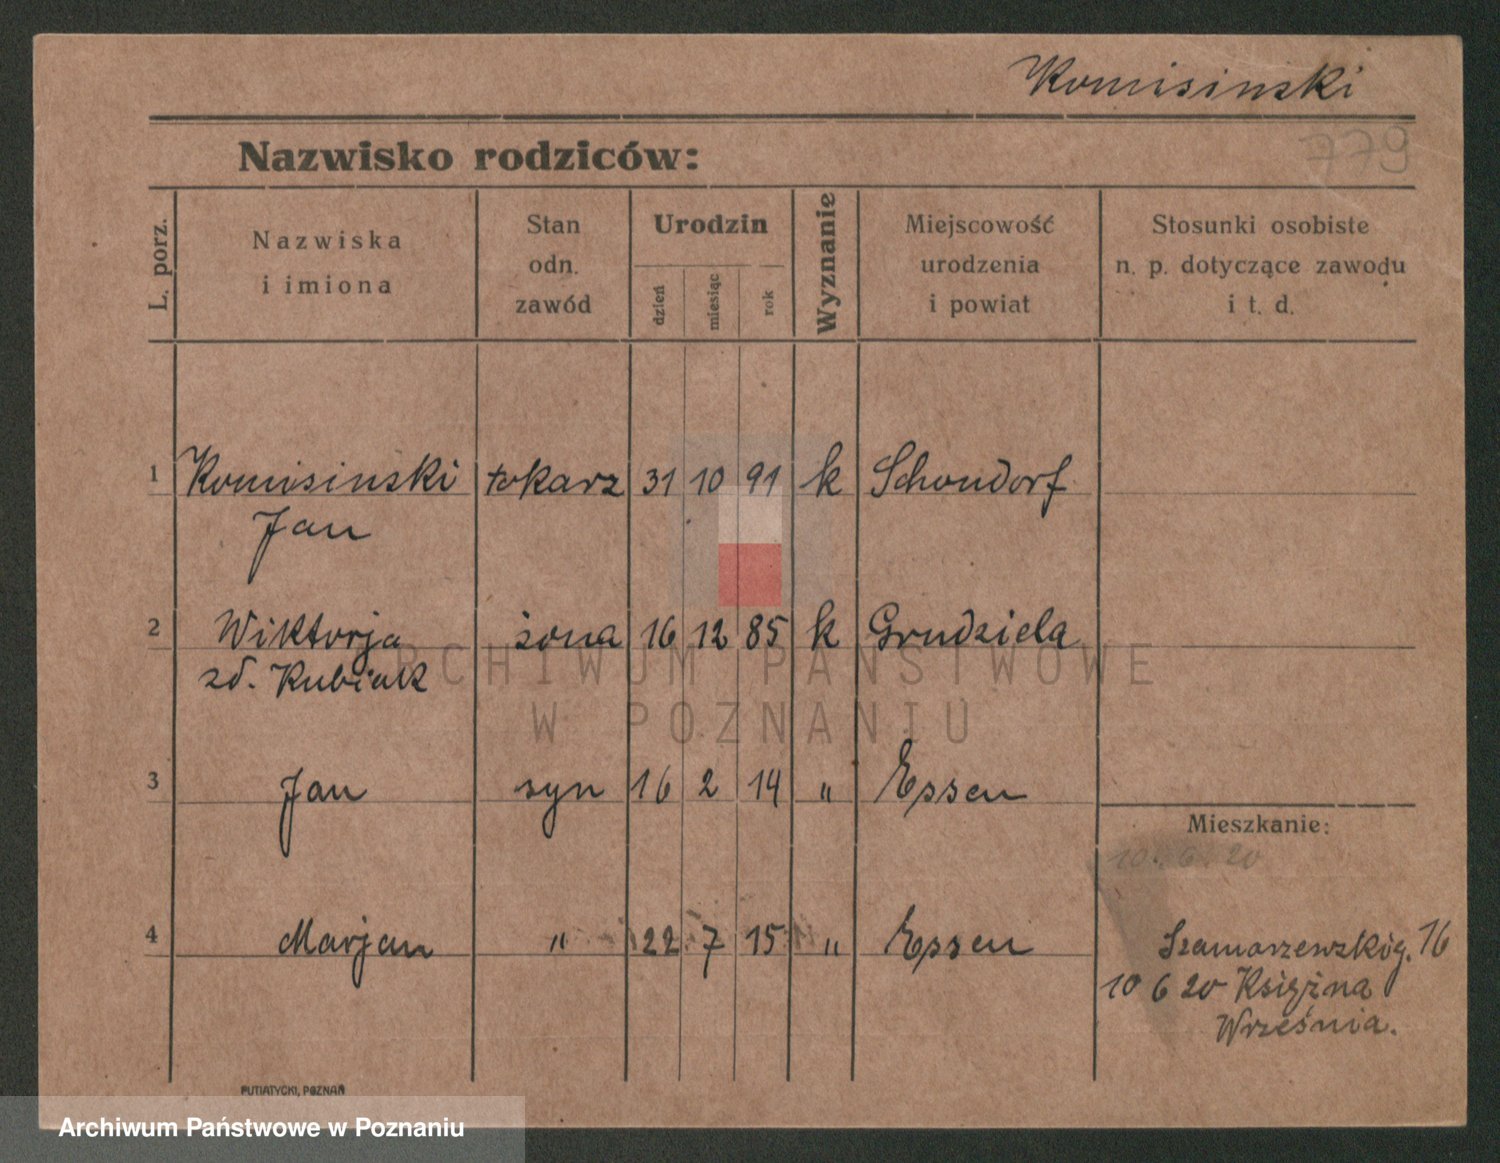 Komisinski
779
Nazwisko rodziców:
L. porz.
Nazwiska
i imiona
Stan
odn.
zawód
Urodzin
dzień
miesiąc
rok
Wyznanie
Miejscowość
urodzenia
i powiat
Stosunki osobiste
n. p. dotyczące zawodu
i t. d.
1 Komisinski tokarz 31 10 91 k Schondorf
Jan
2 Wiktorja żona 16 12 85 k Grudziela
zd. Kubiak
3 Jan syn 16 2 14 " Essen
Mieszkanie:
10. 6. 20
4 Marjan " 22 7 15 " Essen
Szamarzewskig. 16
10 6 20 Książna
Września.
PUTIATYCKI, POZNAŃ
ARCHIWUM PAŃSTWOWE
W POZNANIU
Archiwum Państwowe w Poznaniu